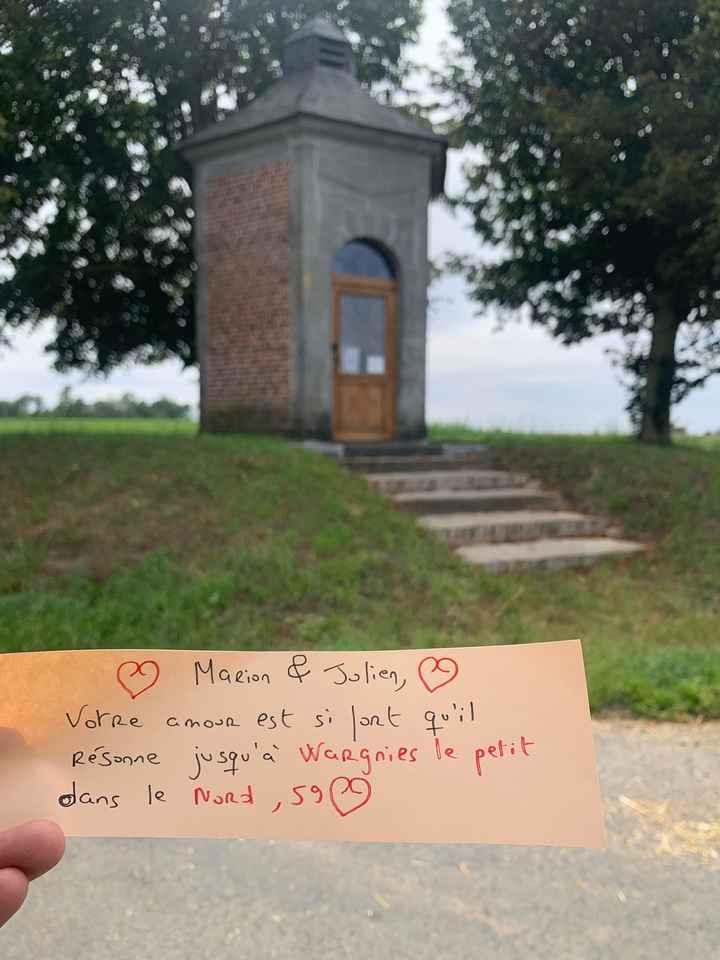 Marion & Julien,
Votre amour est si fort qu'il
résonne jusqu'à Wargnies le petit
dans le Nord, 59